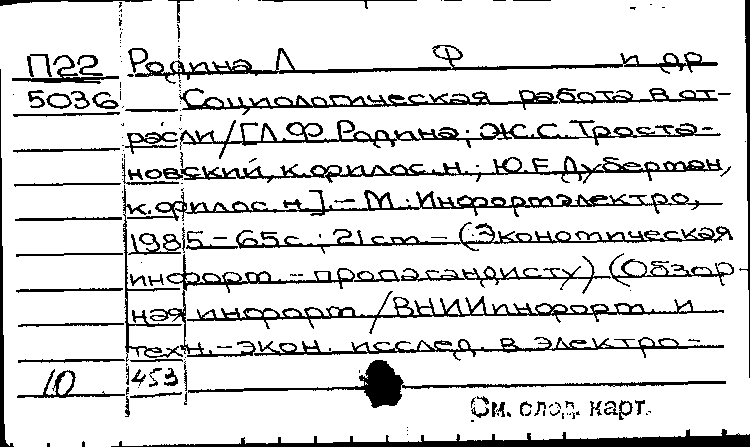 П22 Родина Л Ф и др
5036 Социологическая работа в от-
расли/[Л.Ф.Родина; Ж.С.Троста-
новский, к.филос.н.; Ю.Е.Дубертан,
к.филос.н].-М.:Информэлектро,
1985-65с.; 21см-(Экономическая
информ.-пропагандисту) (Обзор-
ная информ./ВНИИинформ. и
техн.-экон. исслед. в электро-
10 453
См. след. карт.